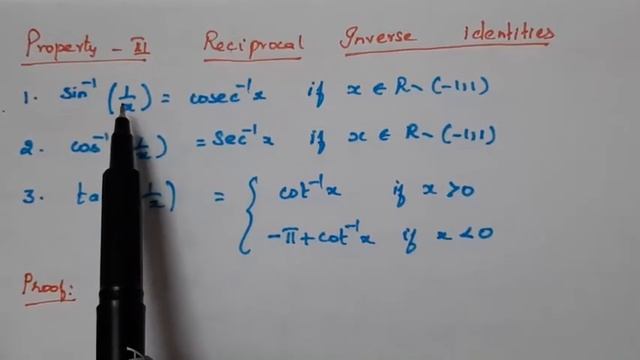 Property - III Reciprocal Inverse identities
1. sin⁻¹(1/x) = cosec⁻¹x if x ∈ R ~ (-1,1)
2. cos⁻¹(1/x) = sec⁻¹x if x ∈ R ~ (-1,1)
3. ta 1/x) = { cot⁻¹x if x > 0
-π + cot⁻¹x if x < 0
Proof: